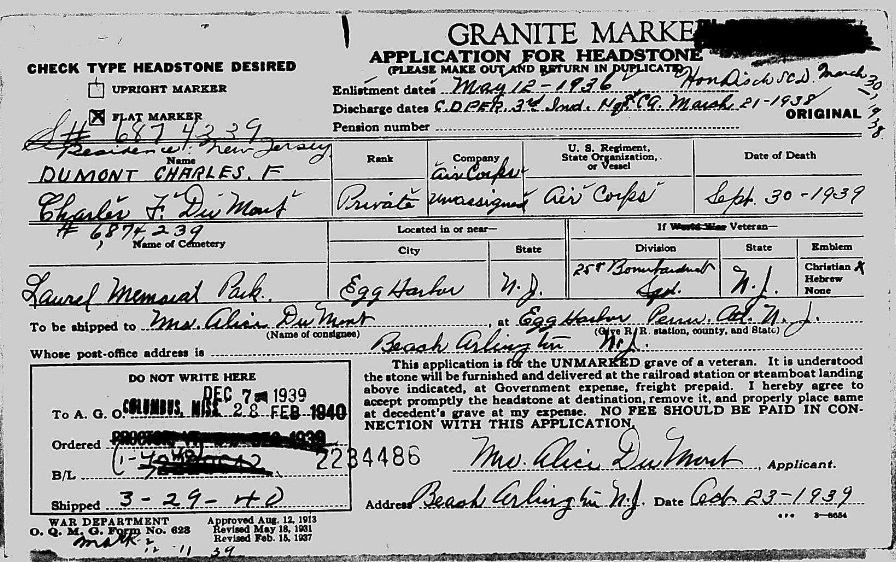 GRANITE MARKE
APPLICATION FOR HEADSTONE
(PLEASE MAKE OUT AND RETURN IN DUPLICATE)
CHECK TYPE HEADSTONE DESIRED
UPRIGHT MARKER
X FLAT MARKER
S# 6874239
Residence: New Jersey
Enlistment dates May 12-1936 Hon Disch SCD. March 30, 1938
Discharge dates C.D.P.E.R. 3rd Ind. Hq March 21-1938
ORIGINAL
Pension number
Name
Rank
Company
U. S. Regiment, State Organization, or Vessel
Date of Death
DUMONT CHARLES. F
Charles F. DuMont
# 6874239
Private
Air Corps
Unassigned
Air Corps
Sept. 30-1939
Name of Cemetery
Located in or near—
City
State
If World War Veteran—
Division
State
Emblem
Christian X
Hebrew
None
Laurel Memorial Park.
Egg Harbor
N.J.
25th Bombardmt Sqd.
N.J.
To be shipped to Mrs. Alice DuMont at Egg Harbor Penn. N.J.
(Name of consignee)
(Give R/R. station, county, and State)
Whose post-office address is Beash Arlington N.J.
DO NOT WRITE HERE
DEC 7 1939
To A. G. O. COLUMBUS, MISS. 28 FEB 1940
Ordered
B/L
2234486
Shipped 3-29-40
This application is for the UNMARKED grave of a veteran. It is understood
the stone will be furnished and delivered at the railroad station or steamboat landing
above indicated, at Government expense, freight prepaid. I hereby agree to
accept promptly the headstone at destination, remove it, and properly place same
at decedent's grave at my expense. NO FEE SHOULD BE PAID IN CON-
NECTION WITH THIS APPLICATION.
Mrs. Alice DuMont, Applicant.
Address Beash Arlington N.J. Date Oct 23-1939
WAR DEPARTMENT
O. Q. M. G. Form No. 623
Approved Aug. 12, 1913
Revised May 18, 1931
Revised Feb. 15, 1937
12 11 39